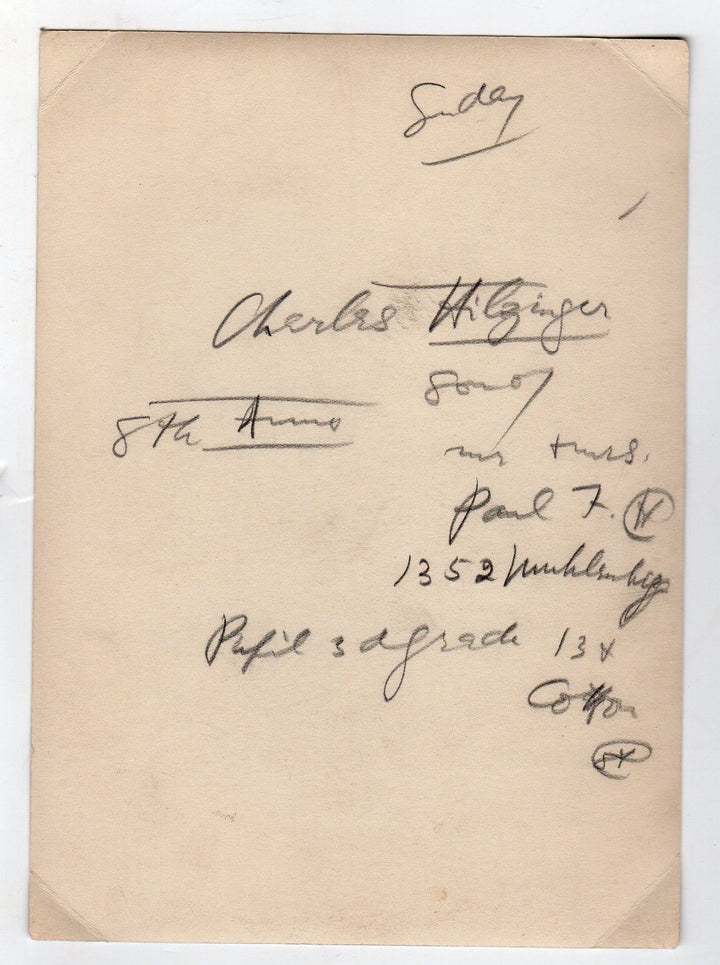 Sunday
Charles Hilzinger
son of
8th Anno
mr + mrs.
Paul F. H
1352 Muhlenberg
Pupil 3d grade 13 +
Cotton
St